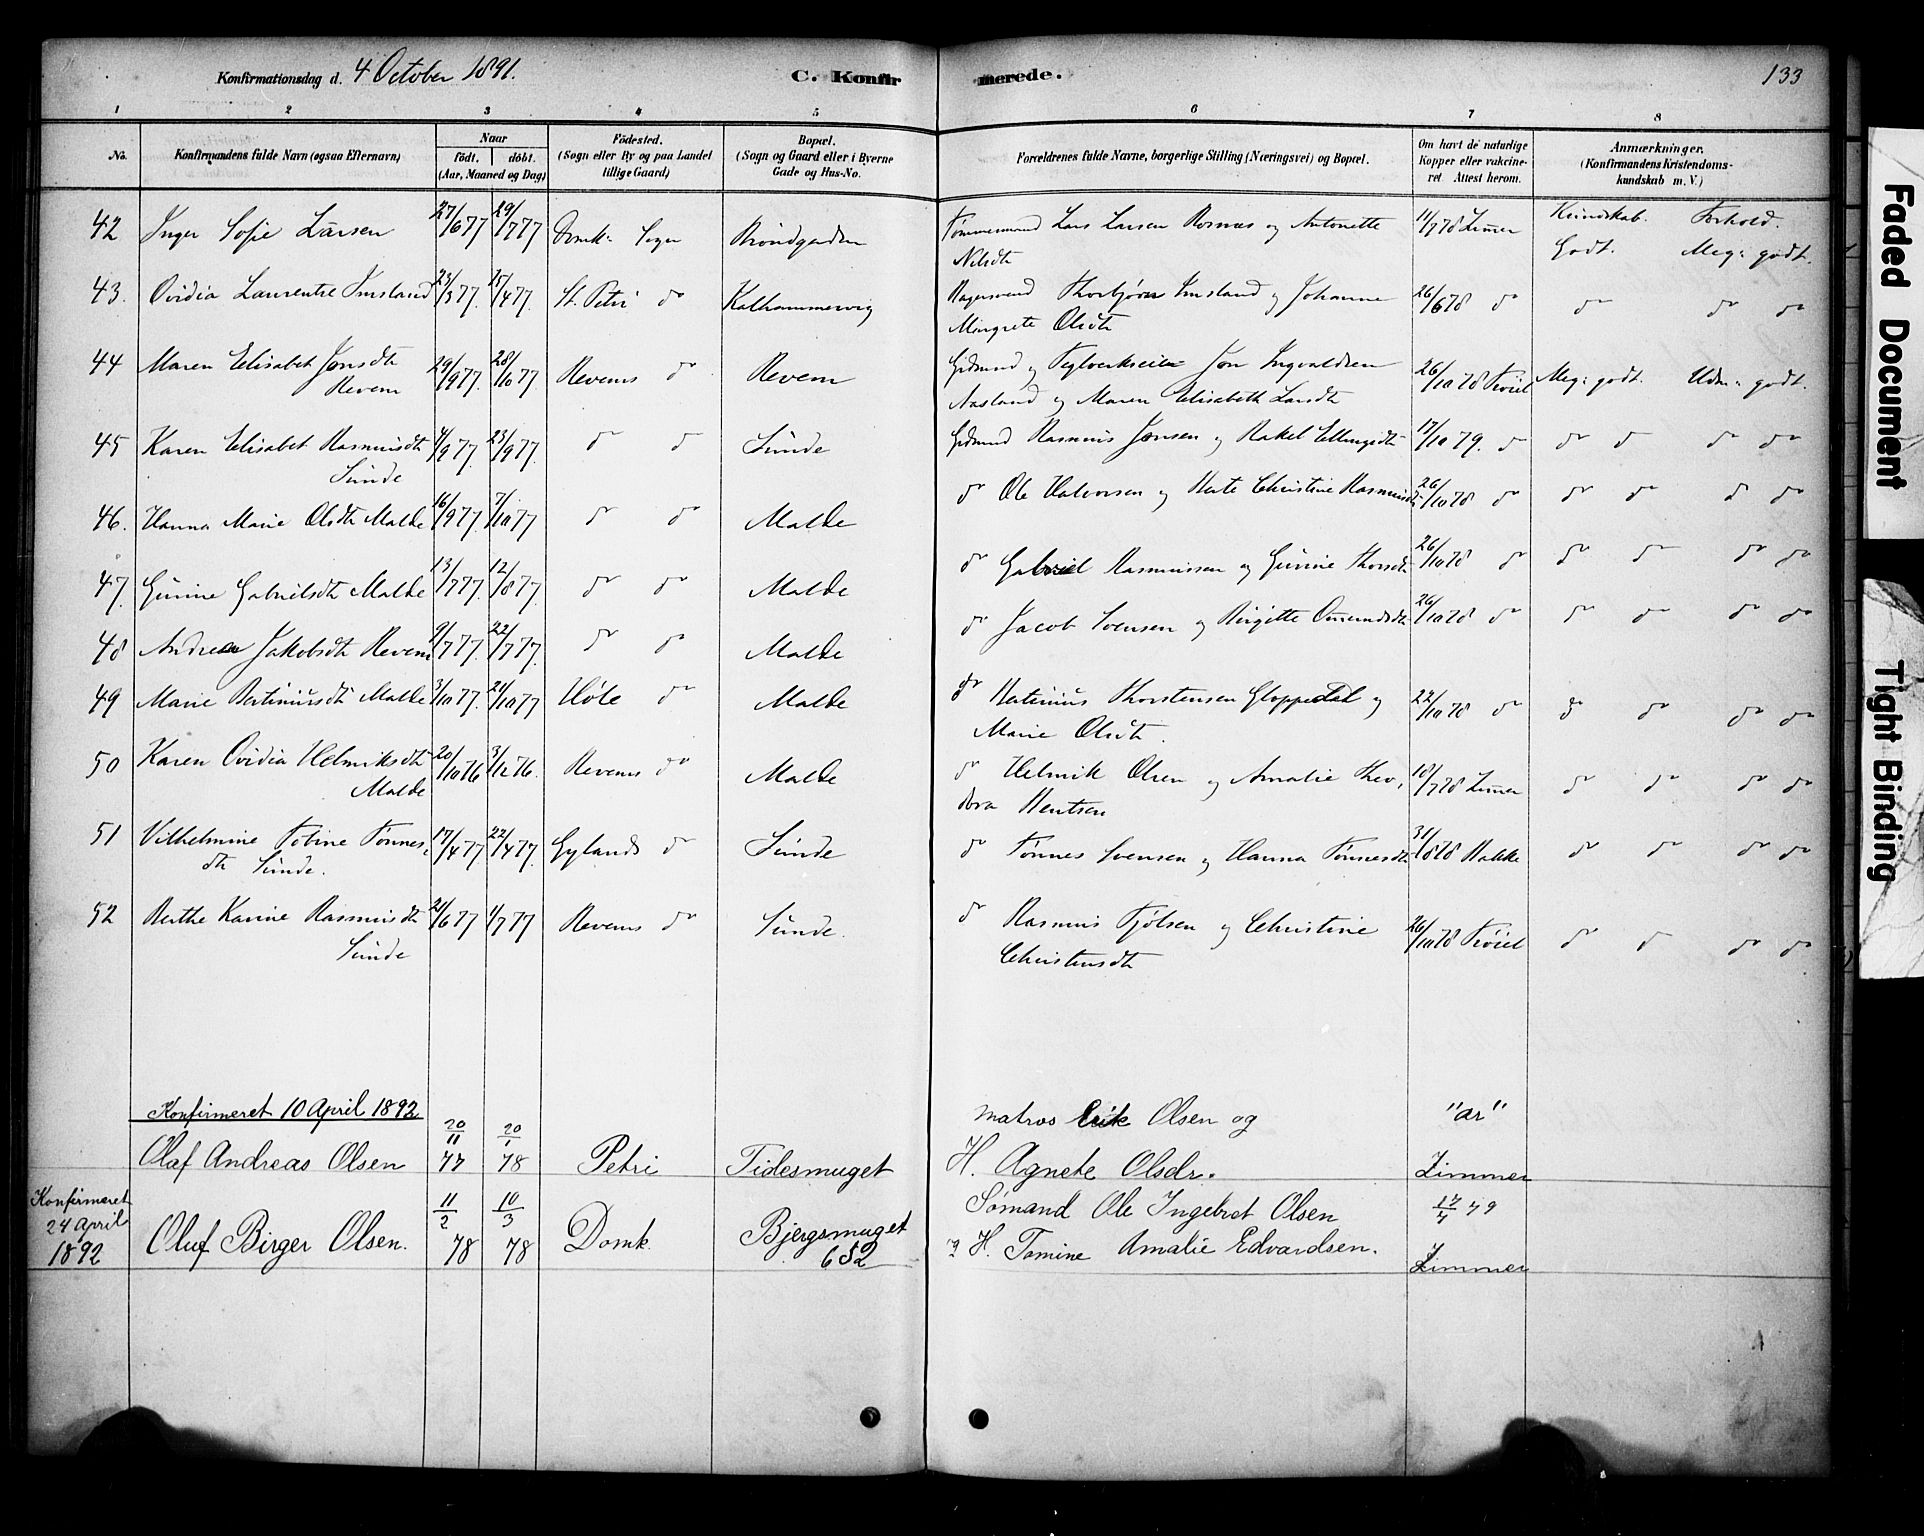 Konfirmationsdag d. 4 October 1891. C. Konfirmerede. 133
1 2 3 4 5 6 7 8
No. Konfirmandens fulde Navn (ogsaa Efternavn) Naar födt. döbt. (Aar, Maaned og Dag) Födested. (Sogn eller By og paa Landet tillige Gaard) Bopæl. (Sogn og Gaard eller i Byerne Gade og Hus-No. Forældrenes fulde Navne, borgerlige Stilling (Næringsvei) og Bopæl. Om havt de naturlige Kopper eller vakcineret Attest herom. Anmærkninger. (Konfirmandens Kristendomskundskab m. V.)
Kundskab. Forhold.
42 Inger Sofie Larsen 27/6 77 29/7 77 Domk: Sogn Tømmermand Lars Larsen og Antonette 11/7 78 Zimmer Godt. Meg: godt.
Nilsdt
43. Ovidia Laurentze Imsland 23/3 77. 15/4 77. St. Petri do Kalhammervig Thorbjørn Imsland og Johanne 26/6 78 do do do do
Margrete Olsdt
44 Maren Elisabet Jonsdt 29/9 77. 28/10 77. Revems do Revem Grdmand og Teglverkseier Jon Ingvaldsen 26/10 78 Meg: godt. Udm: godt.
Revem Aasland og Maren Elisabeth Larsdt
45 Karen Elisabet Rasmusdt 4/9 77 23/9 77. do do Sunde Grdmand Rasmus Jonsen og Rakel Ellingsdt 17/10 79. do do do do do
Sunde
46. Hanna Marie Olsdt Malde 16/9 77 7/10 77 do do Malde do Ole Halvorsen og Christine Rasmusdt 26/10 78 do do do do do
47. Gurine Gabrielsdt Malde 13/7 77. 12/8 77. do do Malde do Gabriel Rasmussen og Gurine Thorsdt 26/10 78 do do do do do
48 Andrea Jakobsdt Revem 9/7 77. 22/7 77. do do Malde do Jacob Svensen og Birgitte Omundsdt 26/10 78 do do do do do
49 Marie Bertinusdt Malde 3/10 77. 21/10 77 Høle do Malde do Bertinius Thorstensen Gloppedal og 22/10 78 do do do do do
Marie Olsdt.
50 Karen Ovidia Helmiksdt 20/10 76 3/12 76. Revems do Malde do Helmik Olsen og Amalie Theo- 18/7 78 Zimmer do do do do
Malde dora Bentsen
51 Vilhelmine Tobine Tønnes- 17/4 77. 22/4 77. Gylands do Sunde do Tønnes Svensen og Hanna Tønnesdt 31/8 78 do do do do
dt Sunde.
52 Berthe Karine Rasmusdt 21/6 77 1/7 77 Revems do Sunde. do Rasmus Fjølsen og Christine 26/10 78 do do do do
Sunde Christensdt
Konfirmeret 10 April 1892
Olaf Andreas Olsen 20/11 77 20/1 78 Petri Tidesmuget Matros Erik Olsen og "ar"
H. Agnete Olsdr. Zimmer
Konfirmeret 24 April 1892 Oluf Birger Olsen. 11/2 78 10/3 78 Domk. Bjergsmuget 652 Sømand Ole Ingebret Olsen 17/7 79
og H. Tomine Amalie Edvardsen. Zimmer
Faded Document
Tight Binding